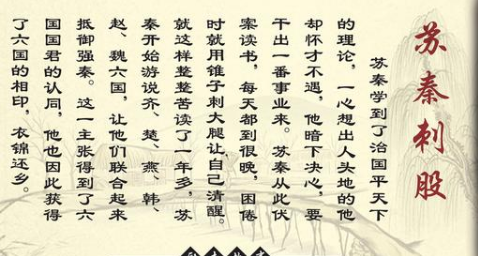 苏秦刺股
苏秦学到了治国平天下
的理论，一心想出人头地的他
却怀才不遇，他暗下决心，要
干出一番事业来。苏秦从此伏
案读书，每天都到很晚，困倦
时就用锥子刺大腿让自己清醒。
就这样整整苦读了一年多，苏
秦开始游说齐、楚、燕、韩、
赵、魏六国，让他们联合起来
抵御强秦。这一主张得到了六
国国君的认同，他也因此获得
了六国的相印，衣锦还乡。